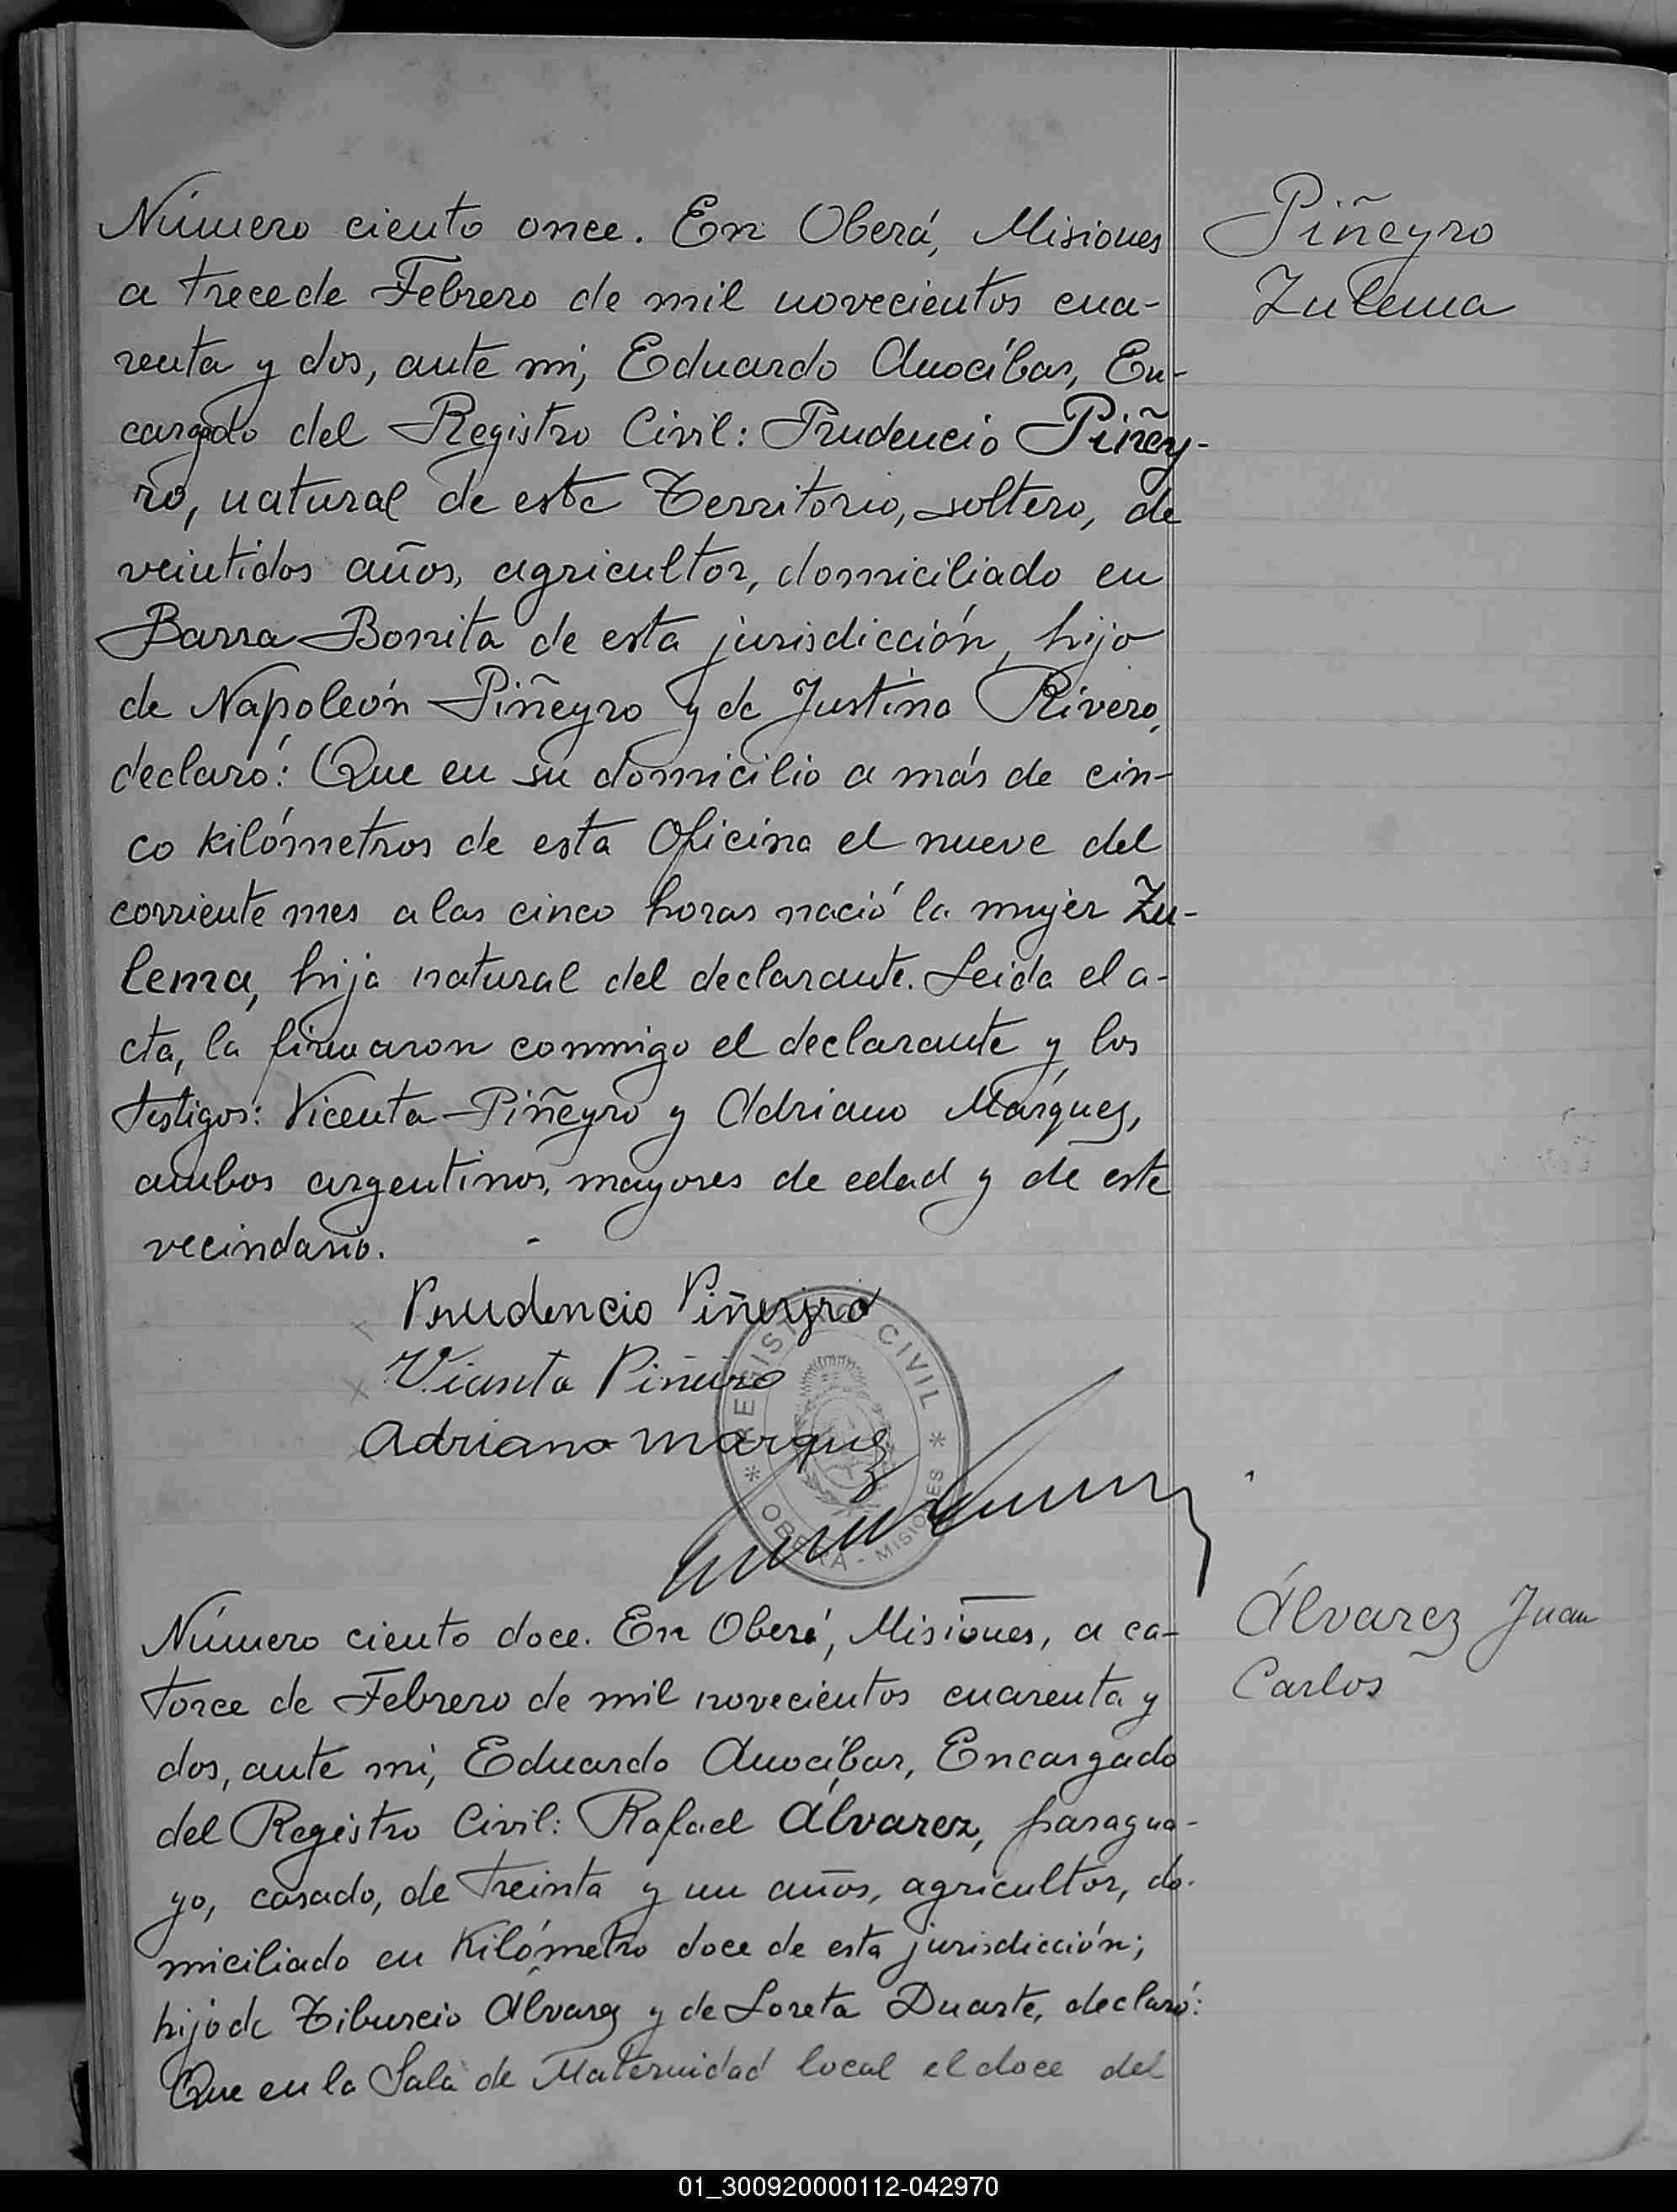 Número ciento once. En Oberá, Misiones
a trece de Febrero de mil novecientos cua-
renta y dos, ante mi, Eduardo Anocíbar, En-
cargado del Registro Civil: Prudencio Piñey-
ro, natural de este Territorio, soltero, de
veintidos años, agricultor, domiciliado en
Barra Bonita de esta jurisdicción, hijo
de Napoleón Piñeyro y de Justina Rivero,
declaró: Que en su domicilio a más de cin-
co kilómetros de esta Oficina el nueve del
corriente mes a las cinco horas nació la mujer Zu-
lema, hija natural del declarante. Leida el a-
cta, la firmaron conmigo el declarante y los
testigos: Vicenta Piñeyro y Adriano Márquez,
ambos argentinos, mayores de edad y de este
vecindario.
Piñeyro
Zulema
Prudencio Piñeyro
Vicenta Piñeiro
Adriano Marquez
REGISTRO CIVIL
OBERÁ - MISIONES
Número ciento doce. En Oberá, Misiones, a ca-
torce de Febrero de mil novecientos cuarenta y
dos, ante mi, Eduardo Anocíbar, Encargado
del Registro Civil: Rafael Álvarez, paragua-
yo, casado, de treinta y un años, agricultor, do-
miciliado en Kilómetro doce de esta jurisdicción;
hijo de Tiburcio Álvarez y de Loreta Duarte, declaró:
Que en la Sala de Maternidad local el doce del
Álvarez Juan
Carlos
01_300920000112-042970